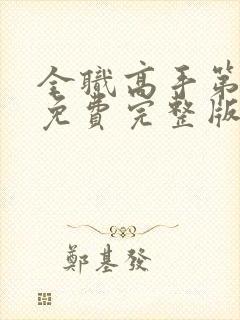 全職高手第
免費完整版
鄭基發